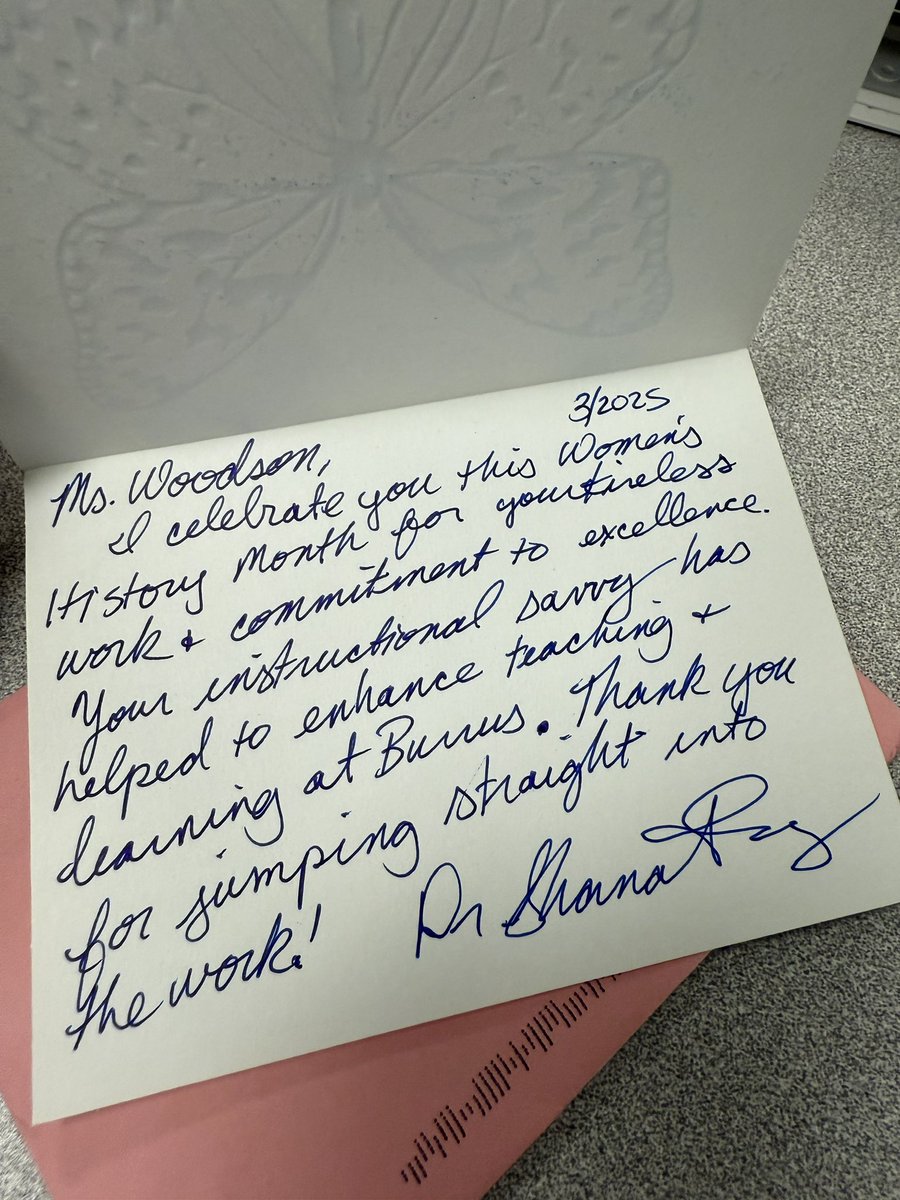 3/2025
Ms. Woodson,
I celebrate you this Women's
History Month for your tireless
work & commitment to excellence.
Your instructional savvy has
helped to enhance teaching &
learning at Burrus. Thank you
for jumping straight into
the work!
Dr Shana